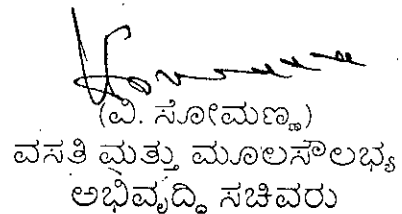 (ವಿ. ಸೋಮಣ್ಣ)
ವಸತಿ ಮತ್ತು ಮೂಲಸೌಲಭ್ಯ
ಅಭಿವೃದ್ಧಿ ಸಚಿವರು